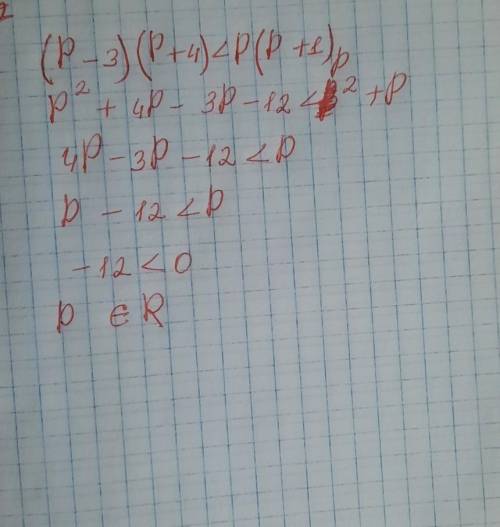 2
(P-3)(P+4)<P(P+1)
P
P² + 4P - 3P - 12 < ² + P
4P - 3P - 12 < P
P - 12 < P
-12 < 0
P ∈ R